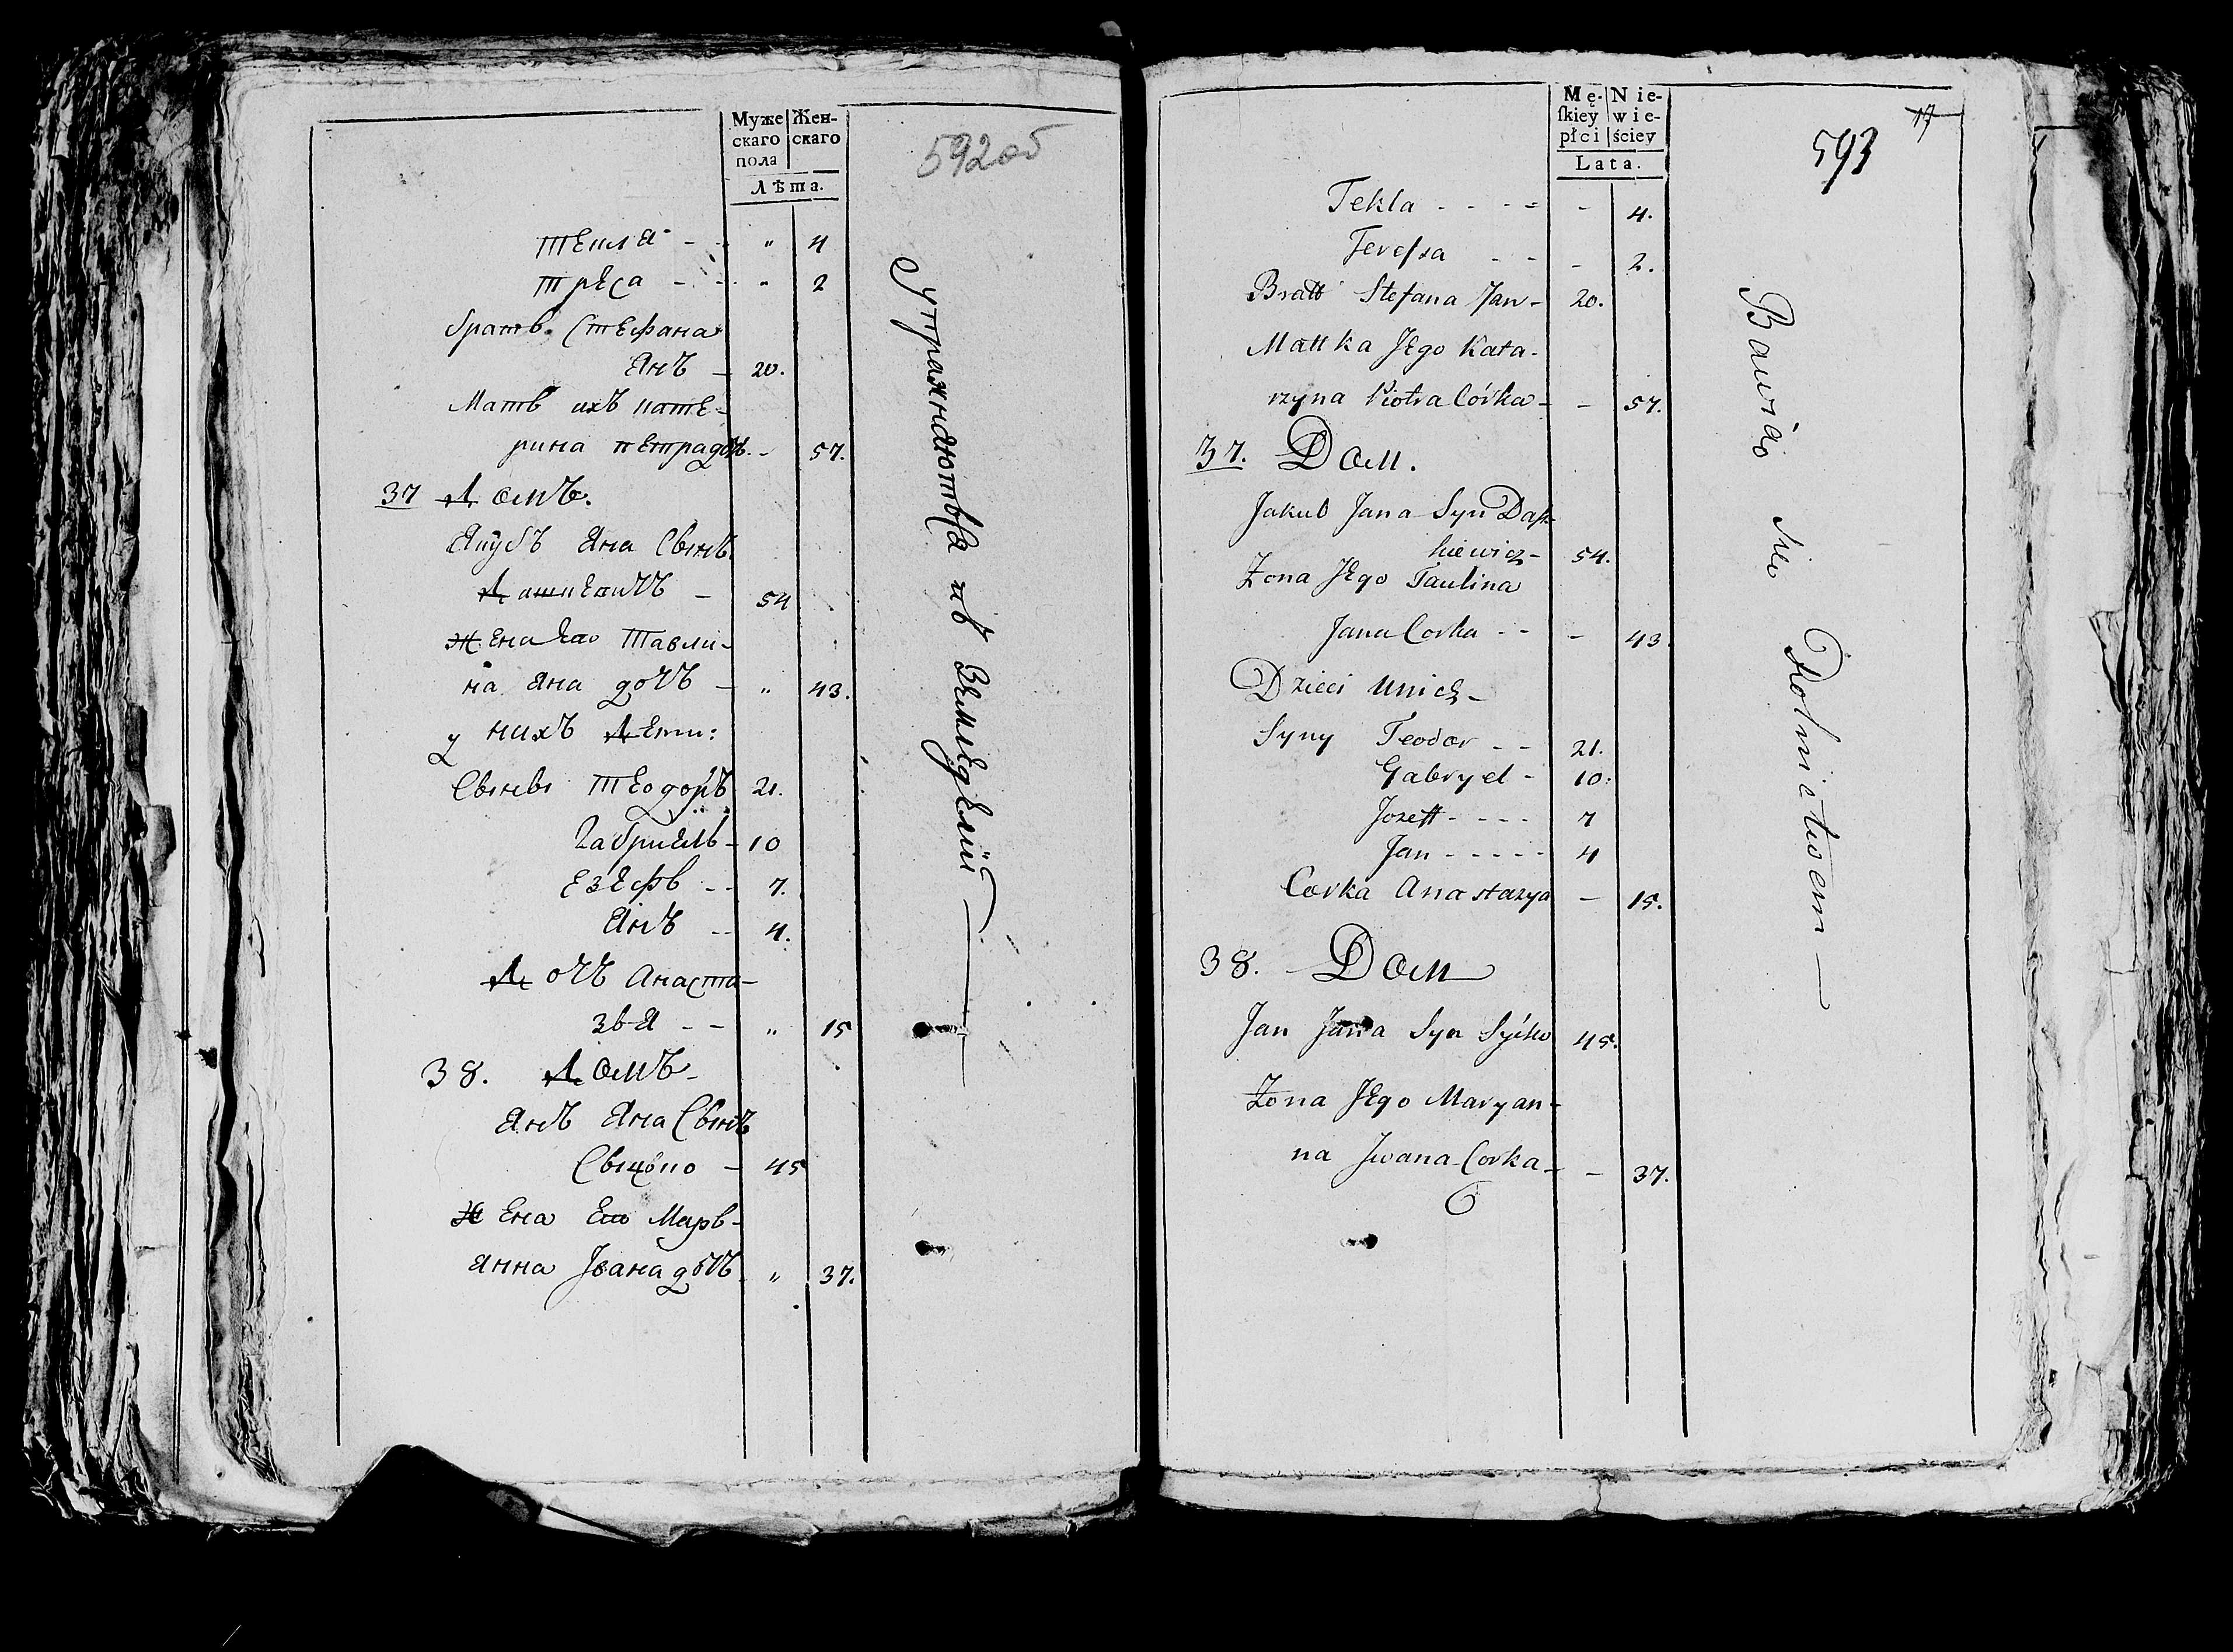 Муже Жен-
скаго скаго
пола
Лѣта.
592об
Текля - - " 4
Треса - - " 2
братъ Стефана
Янъ - 20.
Мать ихъ кате-
рина петрадочь. - 57.
37 Домъ.
Якубъ Яна Сынъ.
Дашкевичъ - 54
Жена Его Тавли-
на Яна дочь - " 43.
у нихъ Дети:
Сыны Теодоръ 21.
Габриель - 10
Езефъ - - 7.
Янъ - - 4.
Дочь Анаста-
зья - - " 15
38. Домъ -
Янъ Яна Сынъ
Сыцько - 45
Жена Его Марь-
янна Iвана дочь " 37.
упражняются въ Земледелии
Mę- Nie-
ſkiey wie-
płci ściey
Lata.
17
593
Tekla - - - - - 4.
Tereſsa - - - 2.
Bratt Stefana Jan - 20.
Mattka JEgo Kata-
rzyna Piotra Córka - - 57.
37. Dom.
Jakub Jana Syn Daſz-
kiewicz - 54.
Żona JEgo Taulina
Jana Corka - - - 43.
Dzieci Unich -
Syny Teodor - - 21.
Gabryel - 10.
Jozeff - - - - 7
Jan - - - - - 4
Corka Anastazya - 15.
38. Dom
Jan Jana Syn Syćko 45.
Żona JEgo Maryan-
na Jwana Corka - - 37.
Bawiąo sie Rolnictwem